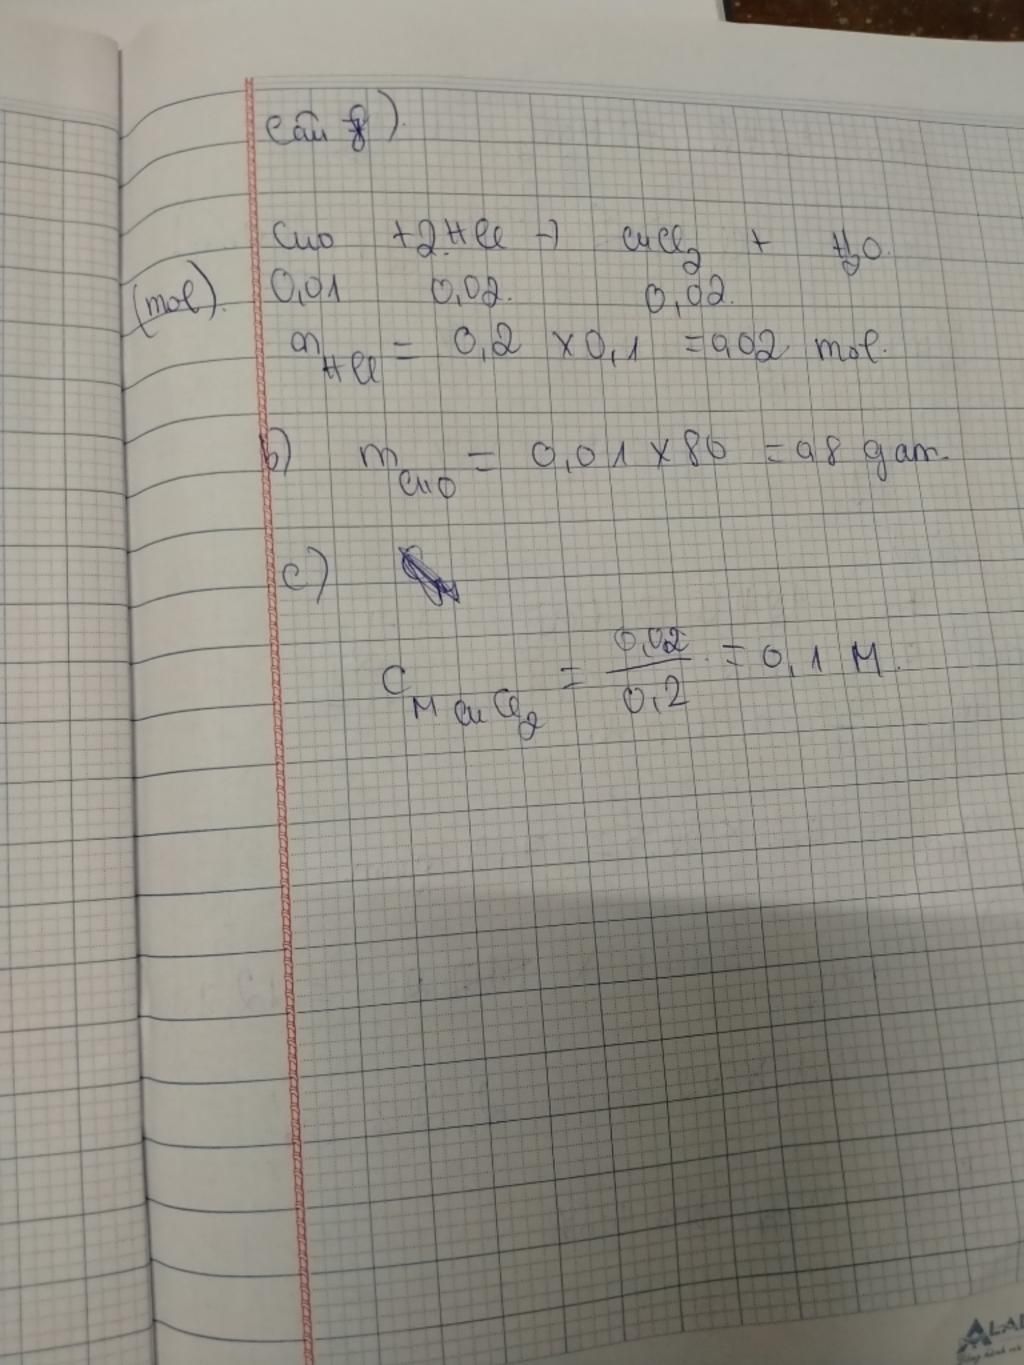 Câu 8).
CuO + 2HCl → CuCl2 + H2O.
(mol). 0,01 0,02. 0,02.
nHCl = 0,2 x 0,1 = 0,02 mol.
b) mCuO = 0,01 x 80 = 0,8 gam.
c)
CM CuCl2 = 0,02/0,2 = 0,1 M.